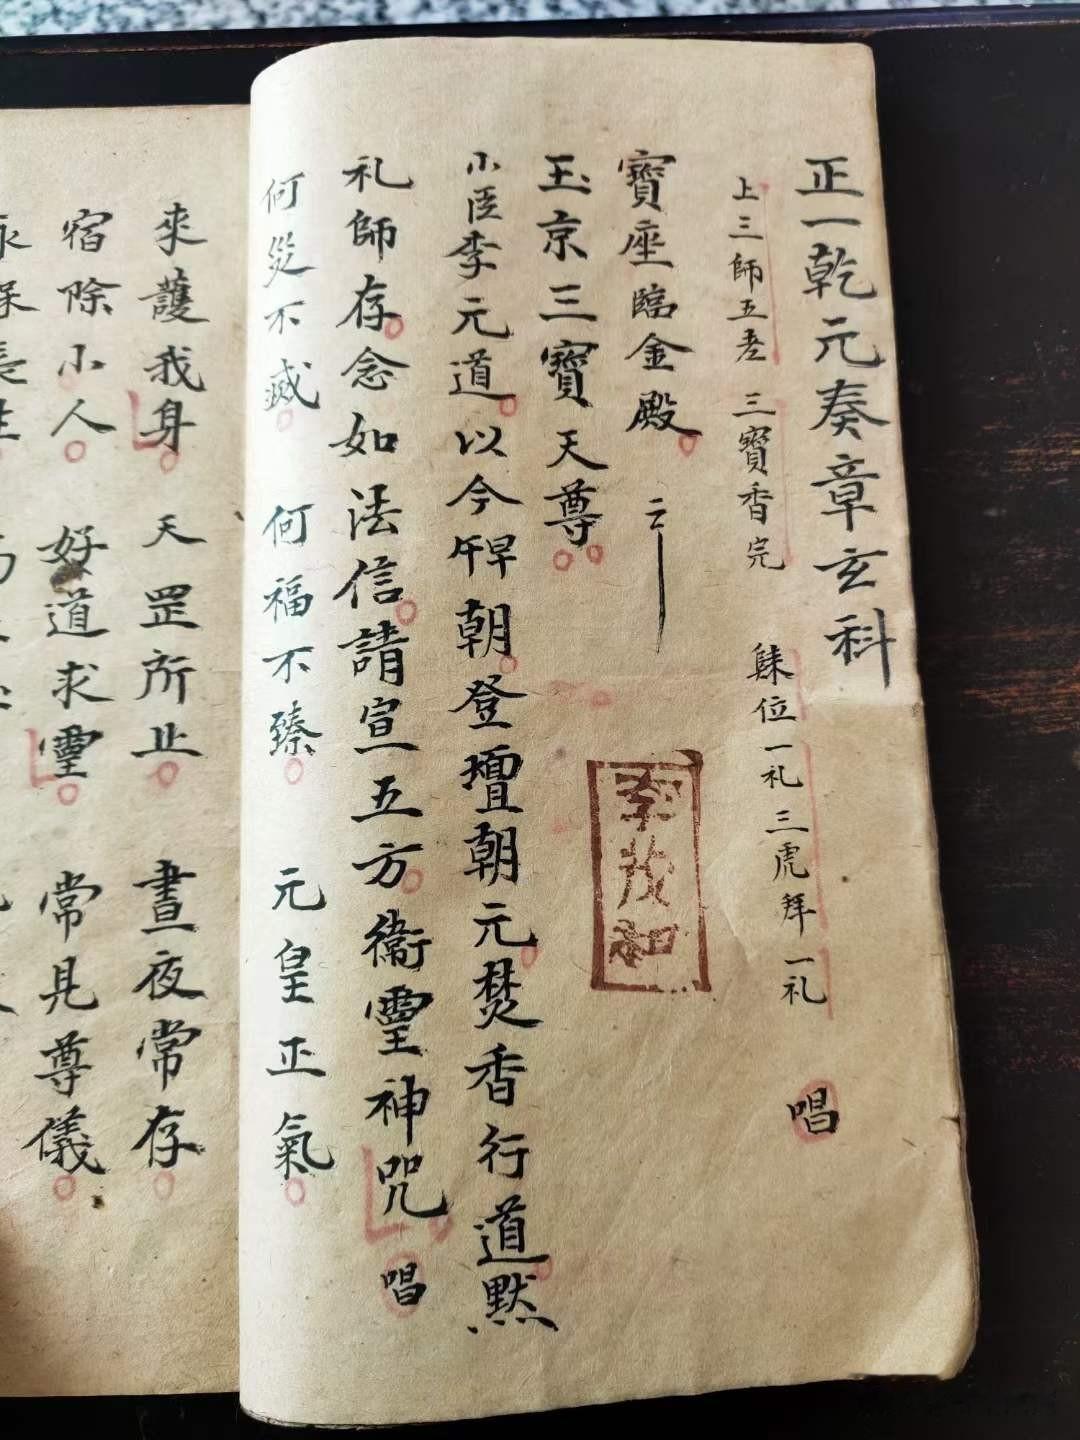 正一乾元奏章玄科
上三師五老 三寶香完 歸位一礼三虎拜一礼 唱
寶座臨金殿 云
玉京三寶天尊
李茂和
小臣李元道以今早午朝登壇朝元焚香行道默
礼師存念如法信請宣五方衛靈神咒 唱
何災不滅 何福不臻 元皇正氣
來護我身 天罡所止 晝夜常存
宿除小人 好道求靈 常見尊儀
永保長生